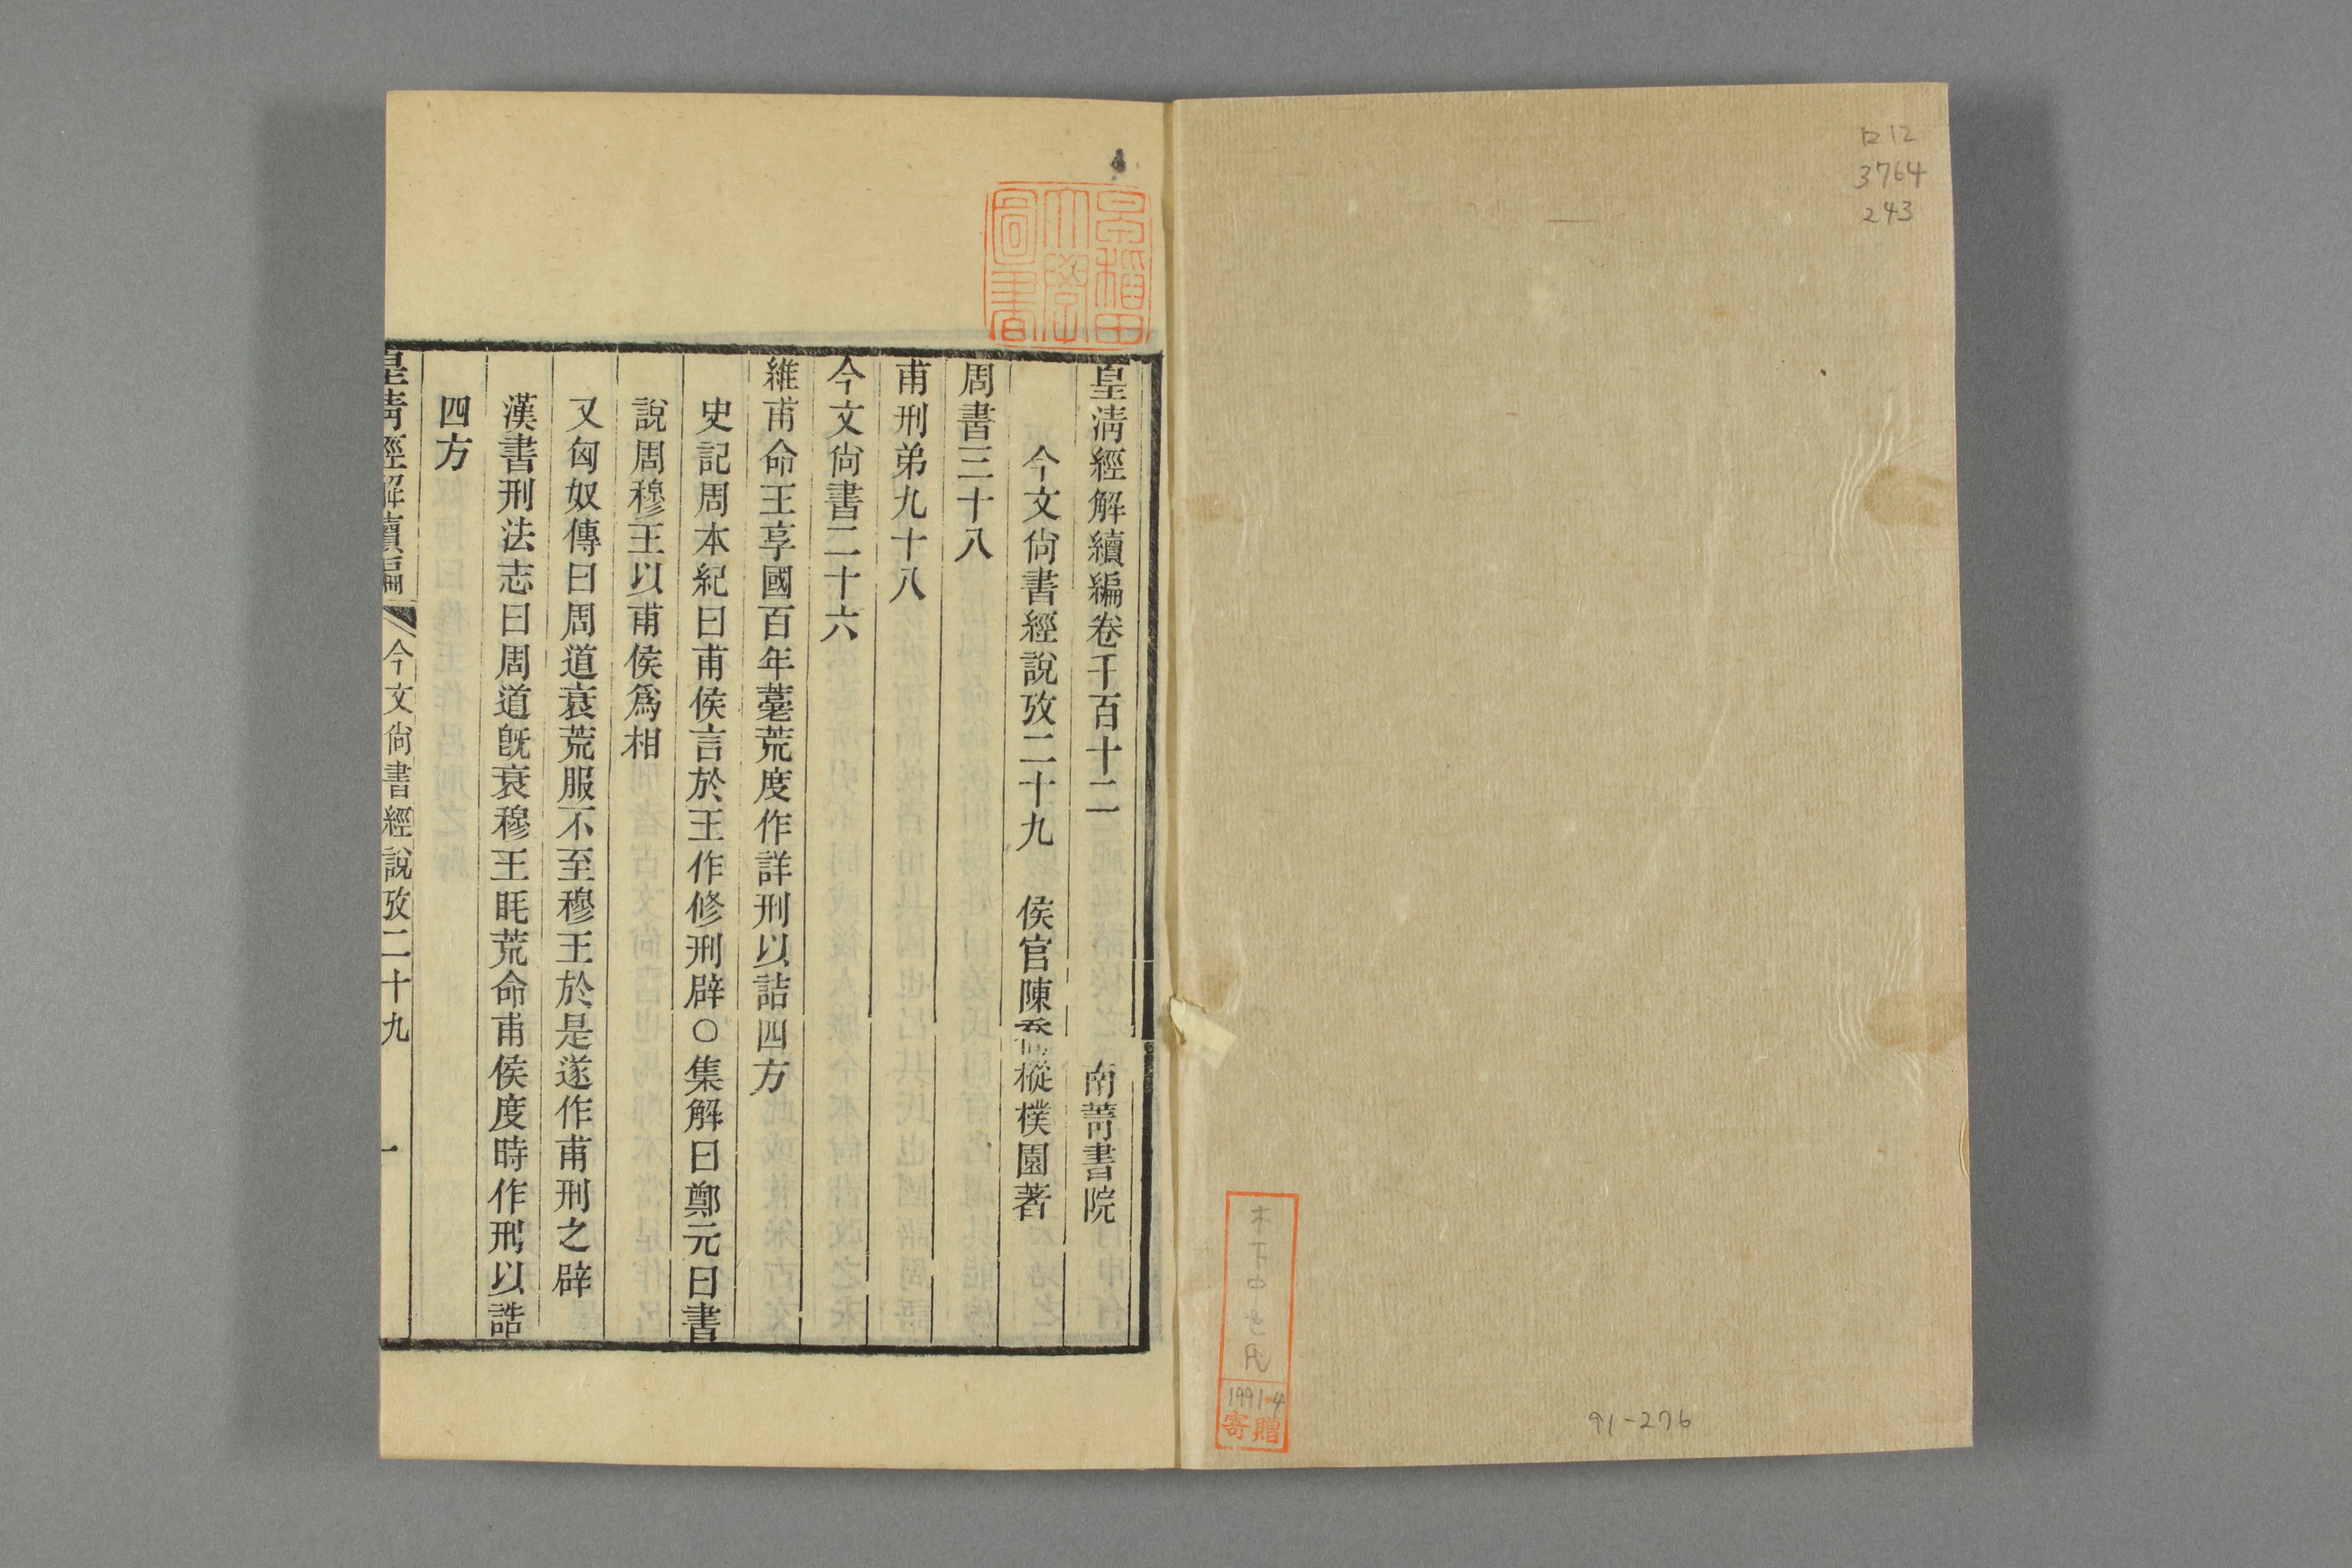 ロ12
3764
243
木下中七氏
1991-4
寄贈
91-276
早稲田
大學
圖書
皇清經解續編卷千百十二 南菁書院
今文尚書經說攷二十九 侯官陳喬樅樸園著
周書三十八
甫刑弟九十八
今文尚書二十六
維甫命王享國百年薹荒度作詳刑以詰四方
史記周本紀曰甫侯言於王作修刑辟○集解曰鄭元曰書
說周穆王以甫侯爲相
又匈奴傳曰周道衰荒服不至穆王於是遂作甫刑之辟
漢書刑法志曰周道旣衰穆王眊荒命甫侯度時作刑以誥
四方
皇清經解續編 今文尚書經說攷二十九 一